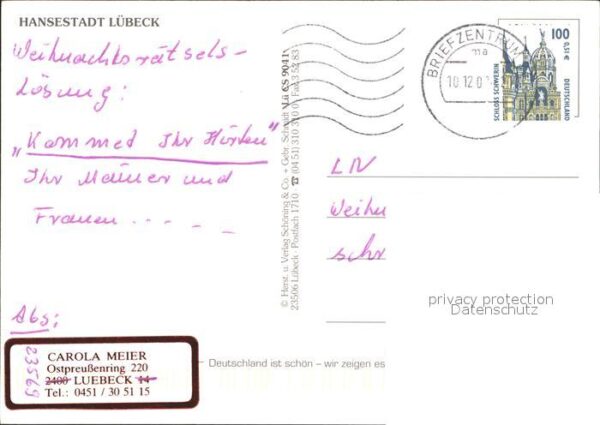 HANSESTADT LÜBECK
Weihnachtsrätsels-
Lösung:
„Kommet Ihr Hirten"
Ihr Männer und
Frauen . . . . . .
Abs:
23569
CAROLA MEIER
Ostpreußenring 220
2400 LUEBECK 14
Tel.: 0451 / 30 51 15
© Herst. u. Verlag Schöning & Co. + Gebr. Schmidt · Lü CS 9041
23506 Lübeck · Postfach 1710 · ☎ (04 51) 310 31 0 · Fax
Deutschland ist schön – wir zeigen es
BRIEFZENTRUM
ma
10.12.0
100
0,51 €
SCHLOSS SCHWERIN
DEUTSCHLAND
LN
Weihn
schr
privacy protection
Datenschutz